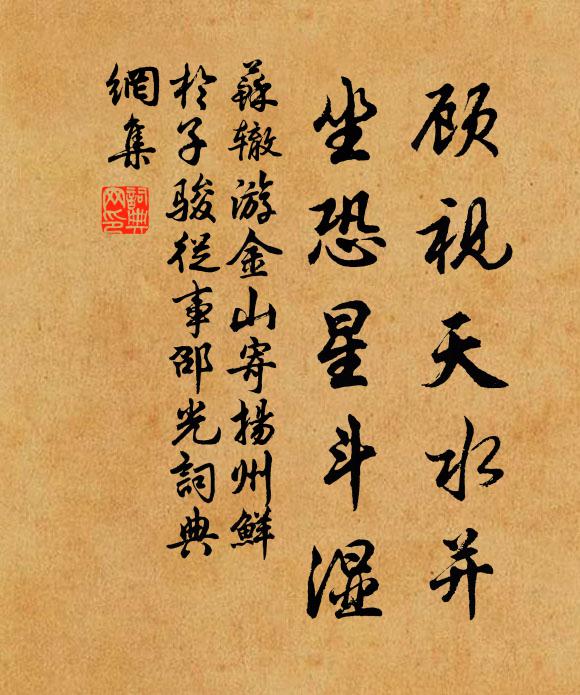 顾视天水并
坐恐星斗湿
蘇辙游金山寄揚州鮮
於子骏從事邵光詞典
網集
詞典
网印